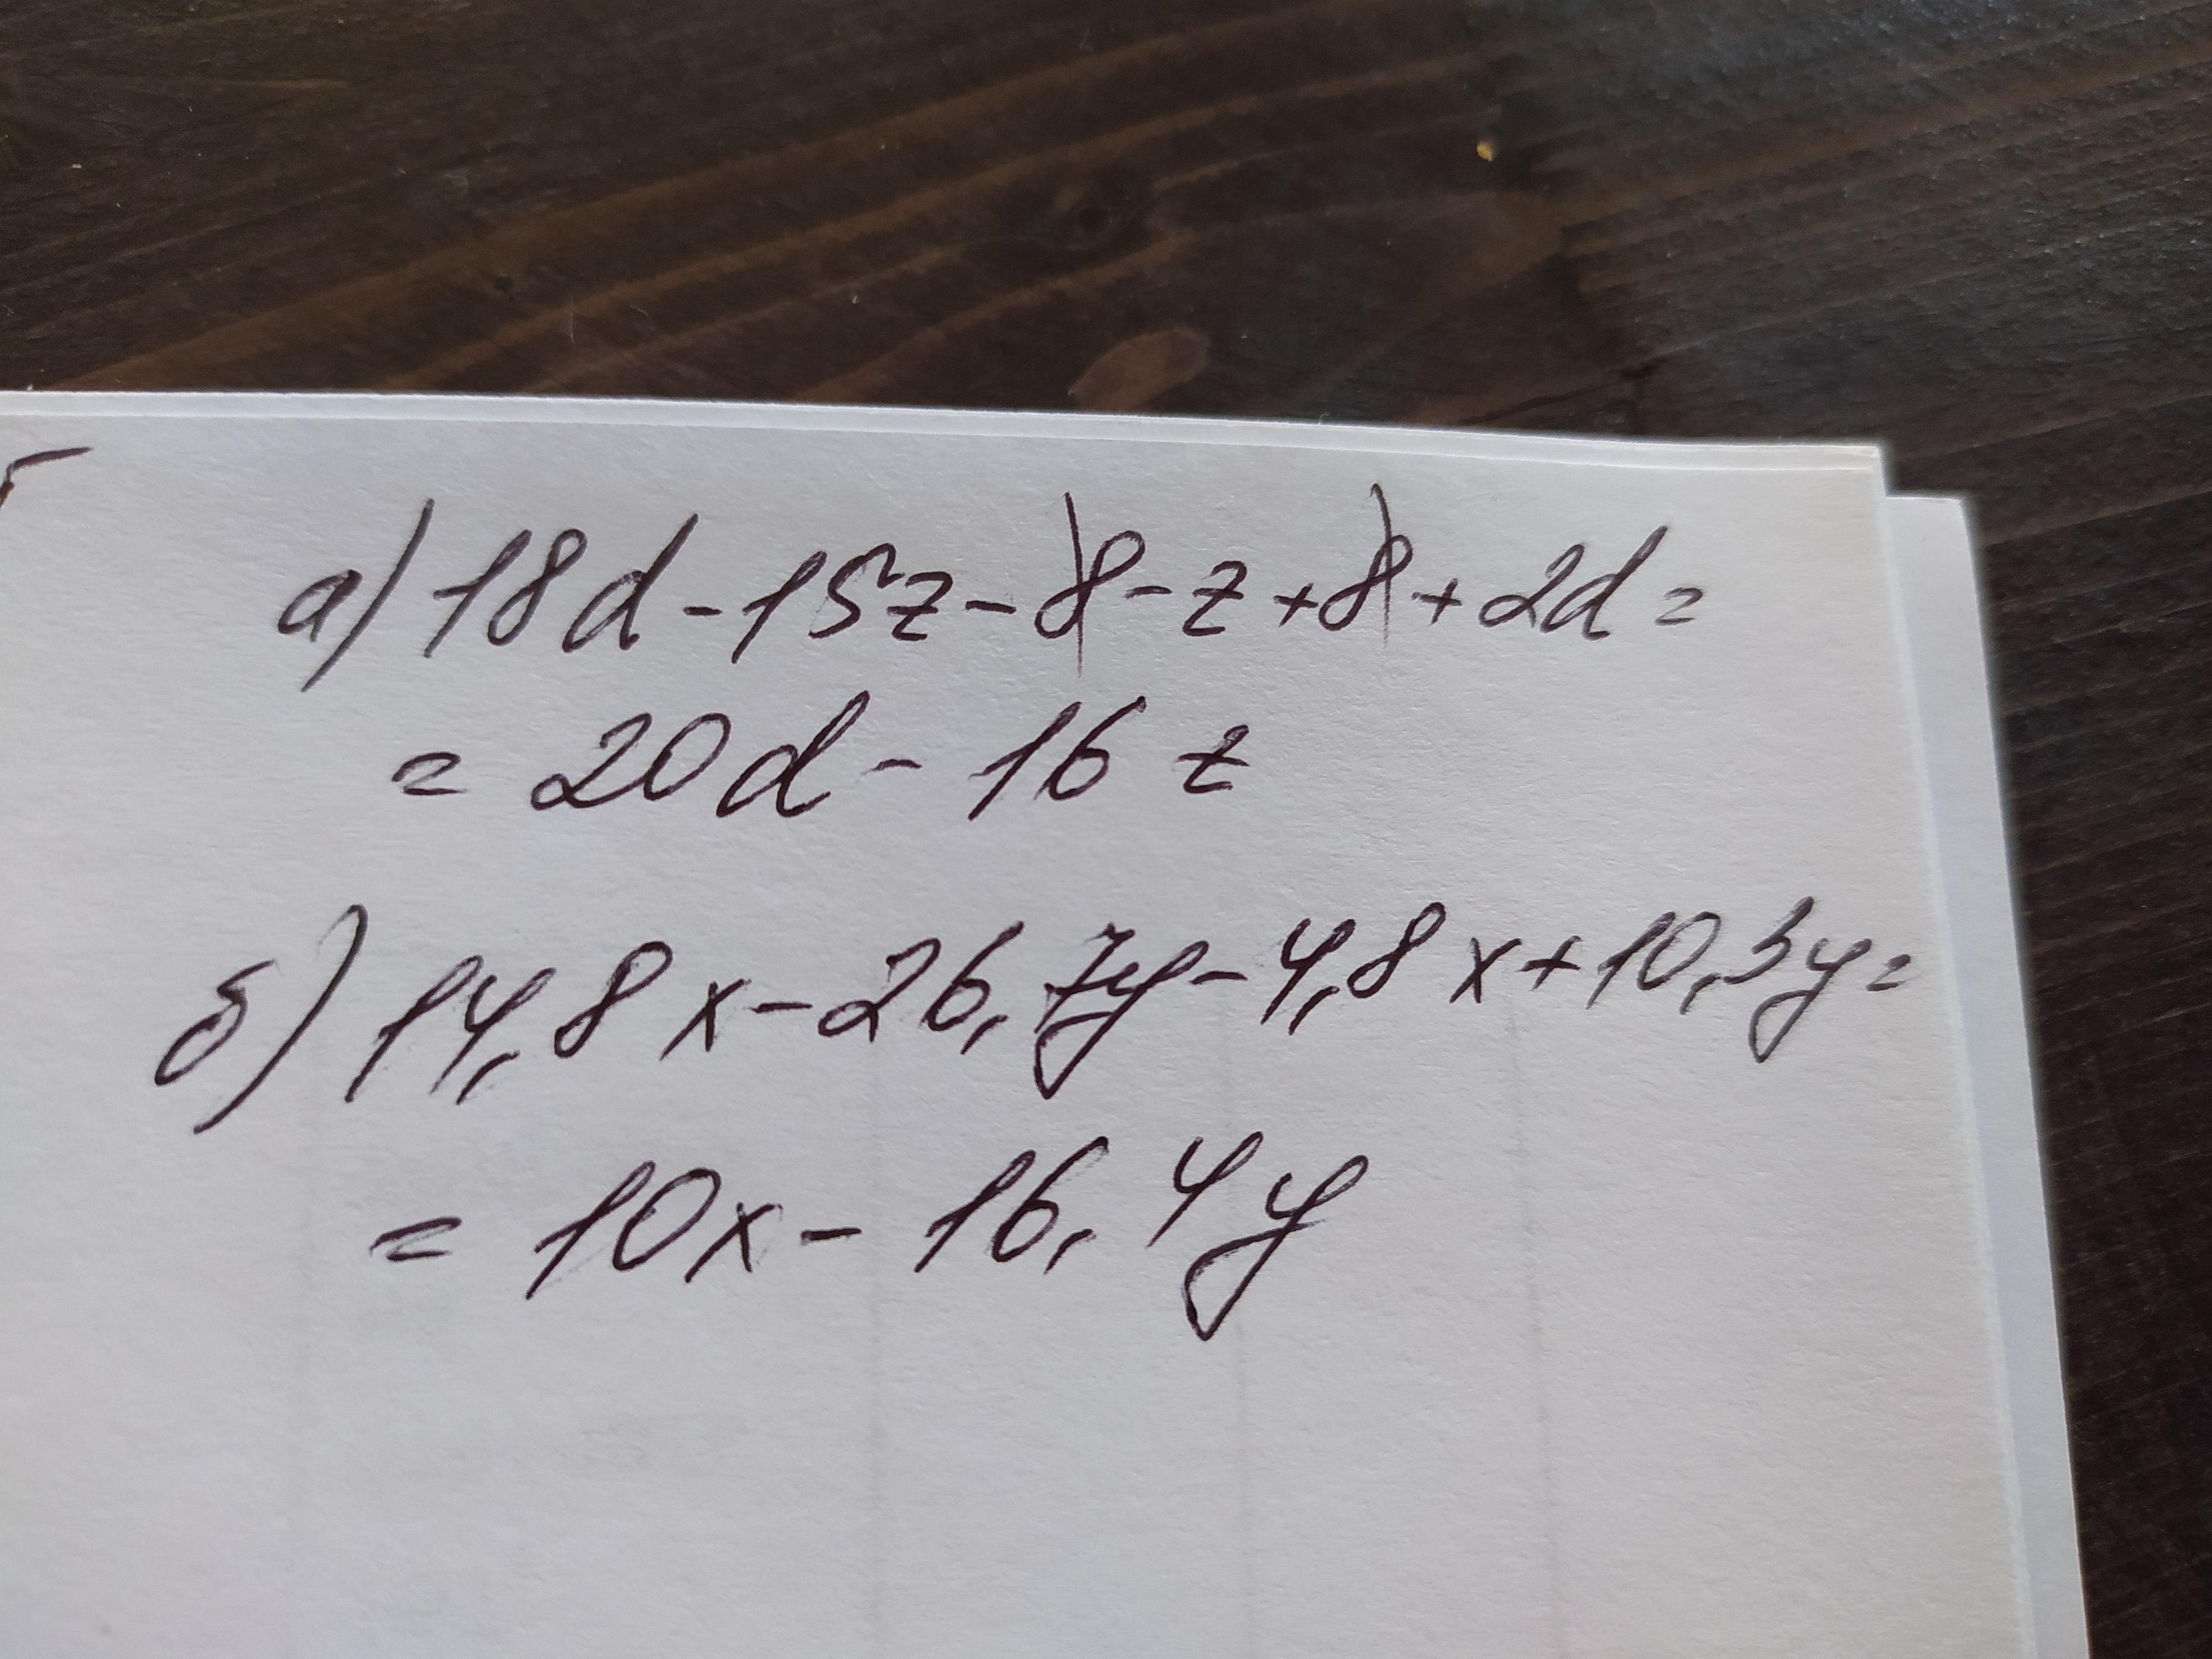 а) 18d - 15z - 8 - z + 8 + 2d =
= 20d - 16z
б) 14,8x - 26,7y - 4,8x + 10,3y =
= 10x - 16,4y